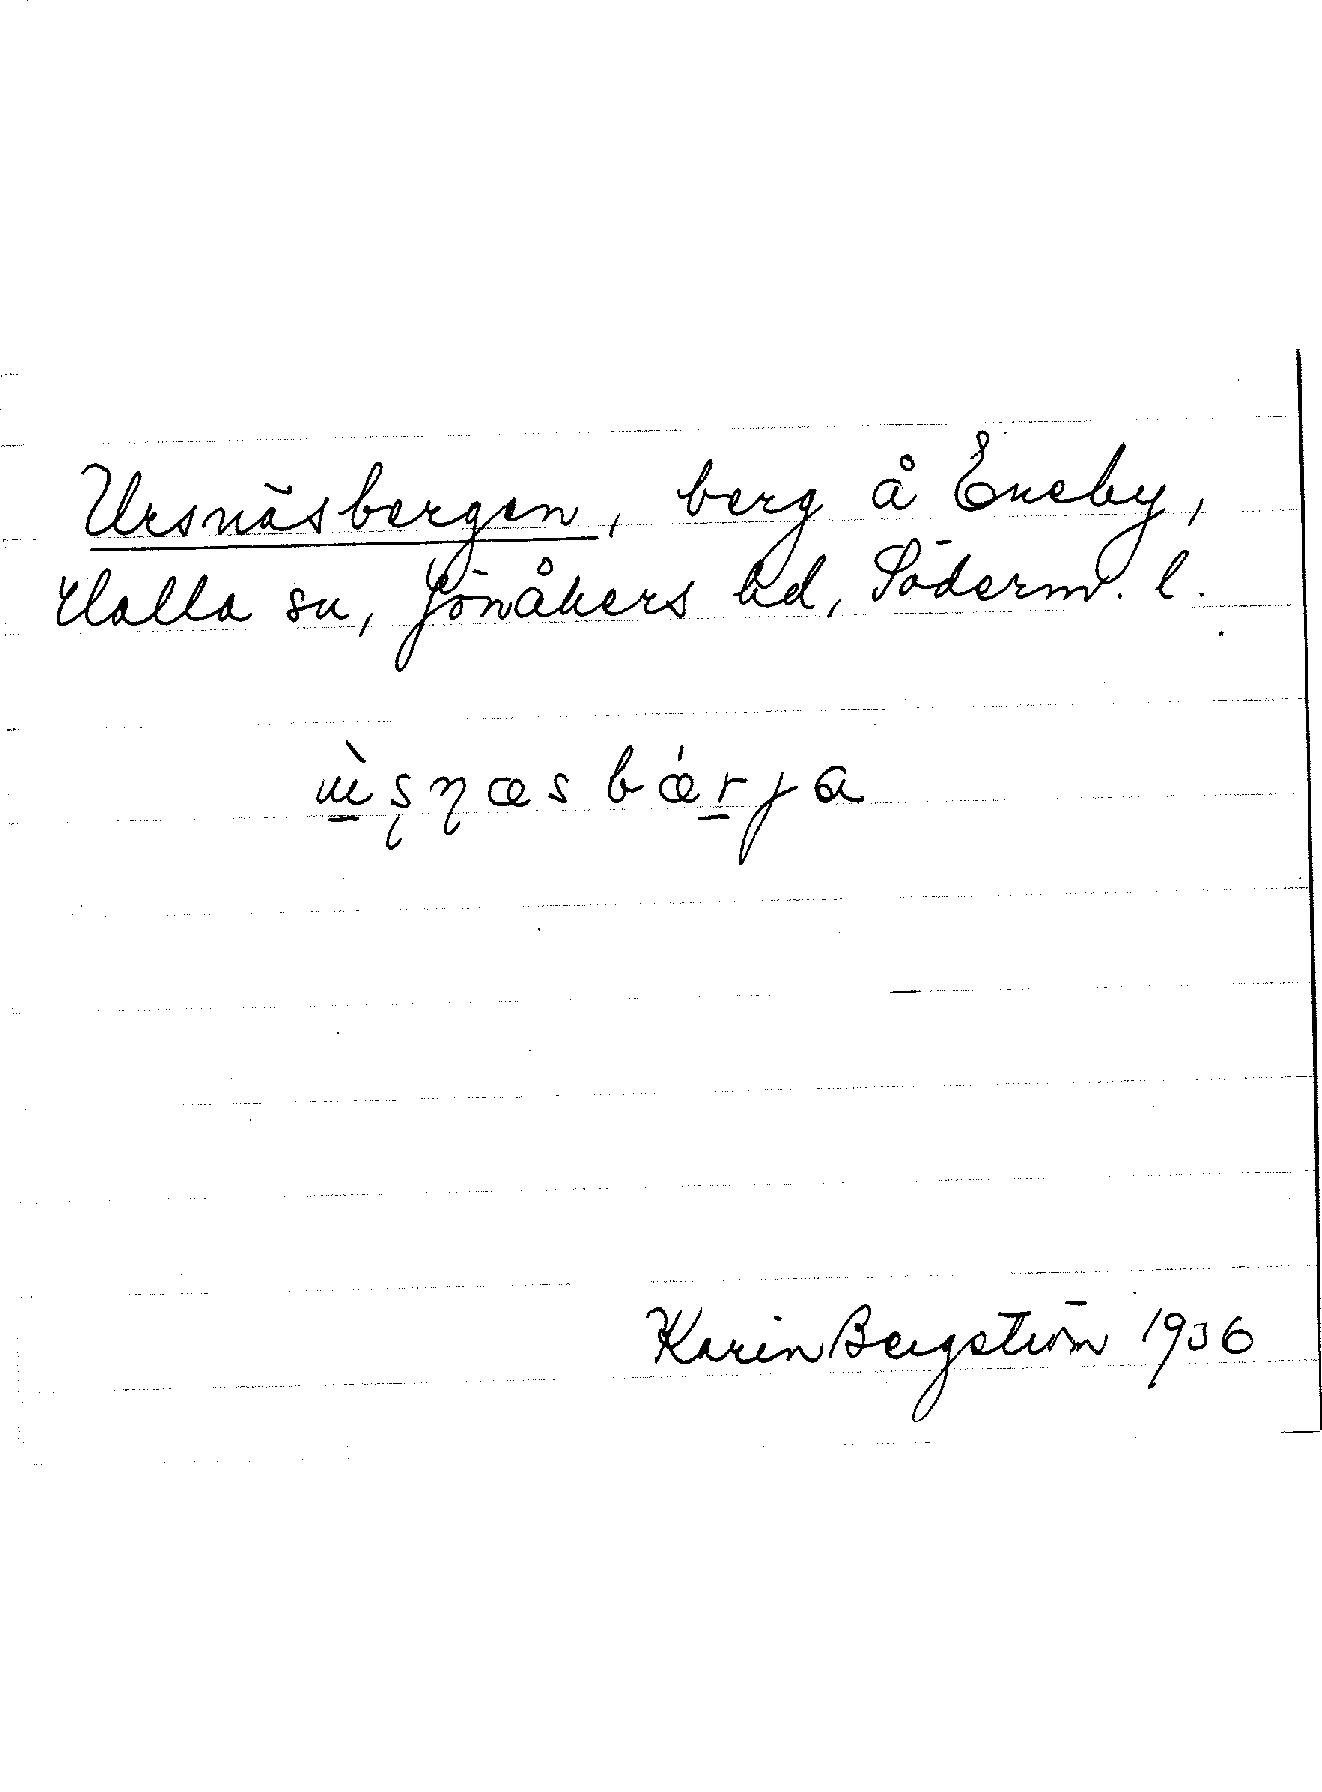 Ursnäsbergen, berg å Eneby,
Halla sn, Jönåkers hd, Söderm. l.
ɯ̱̀ʂɳæsbǽṟja
Karin Bergström 1936